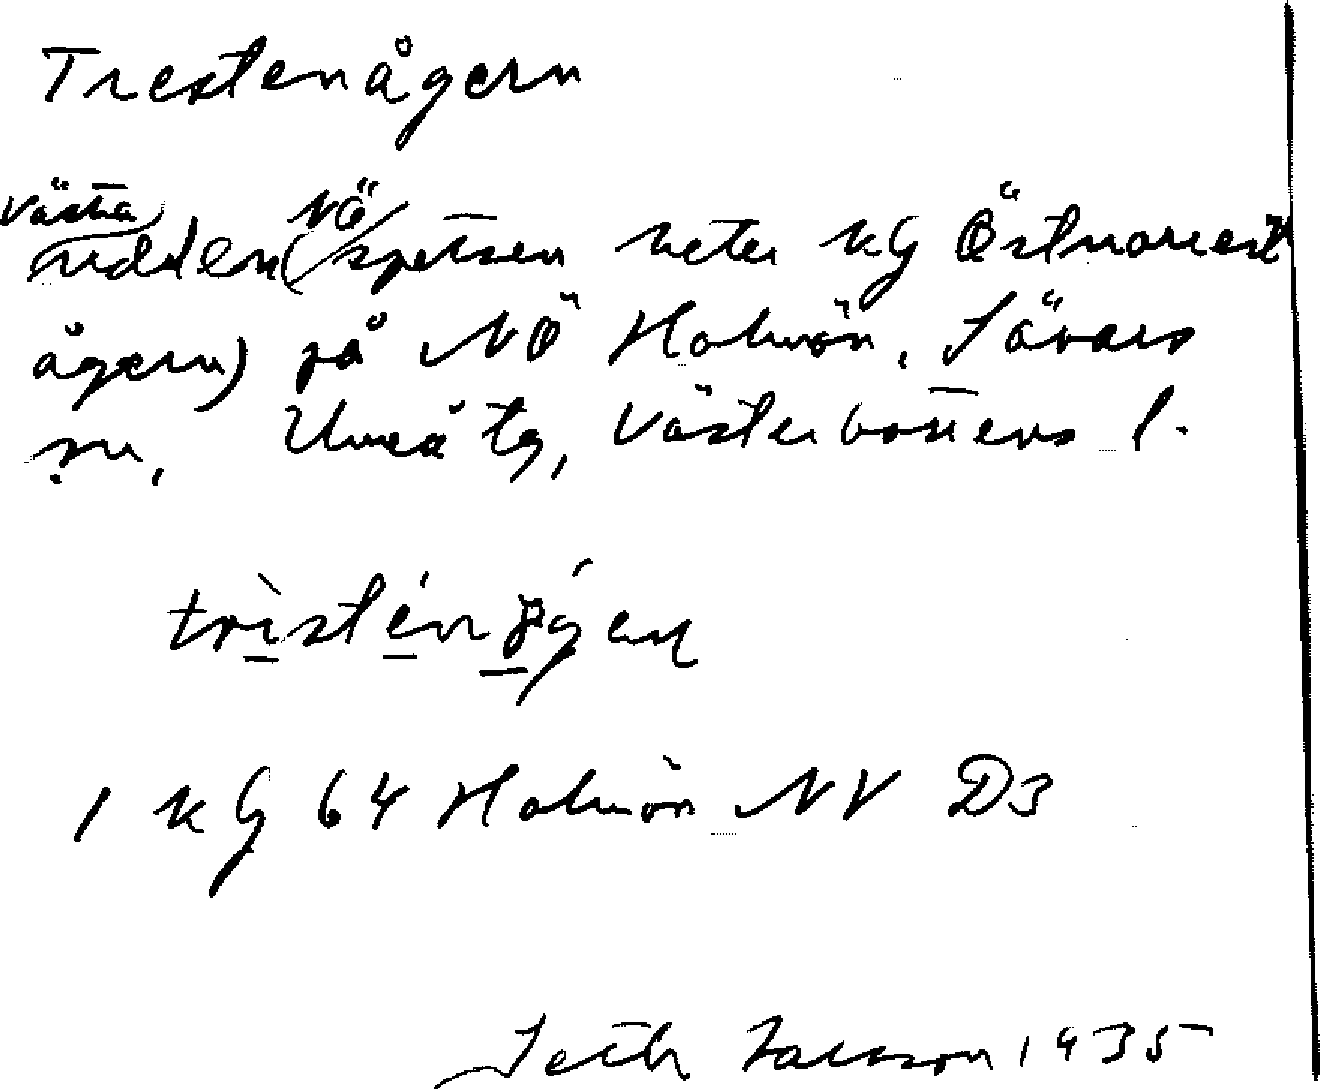 Trestenågern
västra udden (NÖ spetsen heter kG Östnorrest
ågern) på NÖ Holmön, Sävars
sn, Umeå tg, Västerbottens l.
tristénågen
1 kG 64 Holmön NV D3
Seth Larsson 1935